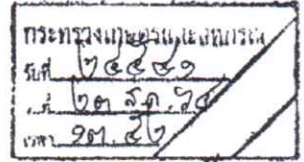 กระทรวงเกษตรและสหกรณ์
รับที่ ๒๔๕๔๑
วันที่ ๒๓ ส.ค. ๖๔
เวลา ๑๓.๔๖